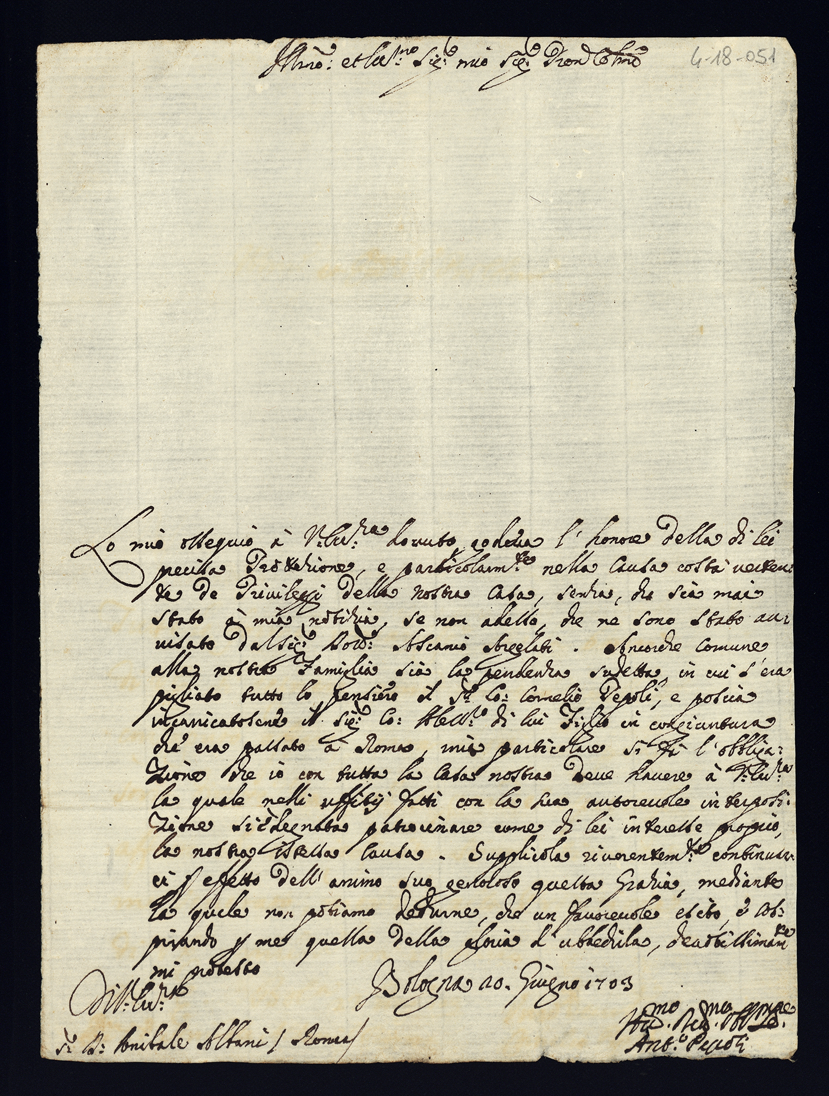 Illmo: et Ecc:mo Sig:r mio Sig:r Pron Colmo
4-18-051
Lo mio ossequio à V: Ecc:za dovuto, godeva l'honore della di lei
pecilia Protezione, e particolarm:te nella Causa costà verten:
te de Privileggi della nostra Casa, senza, che sia mai
stato à mia notizia, se non adesso, che ne sono stato au:
uisato dal Sig:r Dott: Ascanio . Ancorche comune
alla nostra Famiglia sia la pendenza sudetta, in cui s'era
pigliato tutto lo pensiero il S:r Co: Cornelio Pepoli, e poscia
incaricatosene il Sig:r Co: di lui Figlio in congiuntura
ch'era passato à Roma, mia particolare si fà l'obbliga:
zione che io con tutta la Casa nostra deve havere à V: Ecc:za
la quale nelli uffitij fatti con la sua autoreuole interposi:
zione si è degnata patrocinare come di lei interesse proprio,
la nostra istessa Causa. Supplicola riuerentem:te continuar:
ci p effetto dell'animo suo generoso questa Grazia, mediante
la quale non potiamo dedurne, che un fauoreuole esito, e sos:
pirando p me quella della gloria d'ubbedirla, deuotissimam:te
mi protesto
Di V: Ecc:za
Bologna 20. Giugno 1703
S:r D: Anibale Albani / Roma /
Hu:mo Deu:mo Obb:mo
Ant:o Pepoli